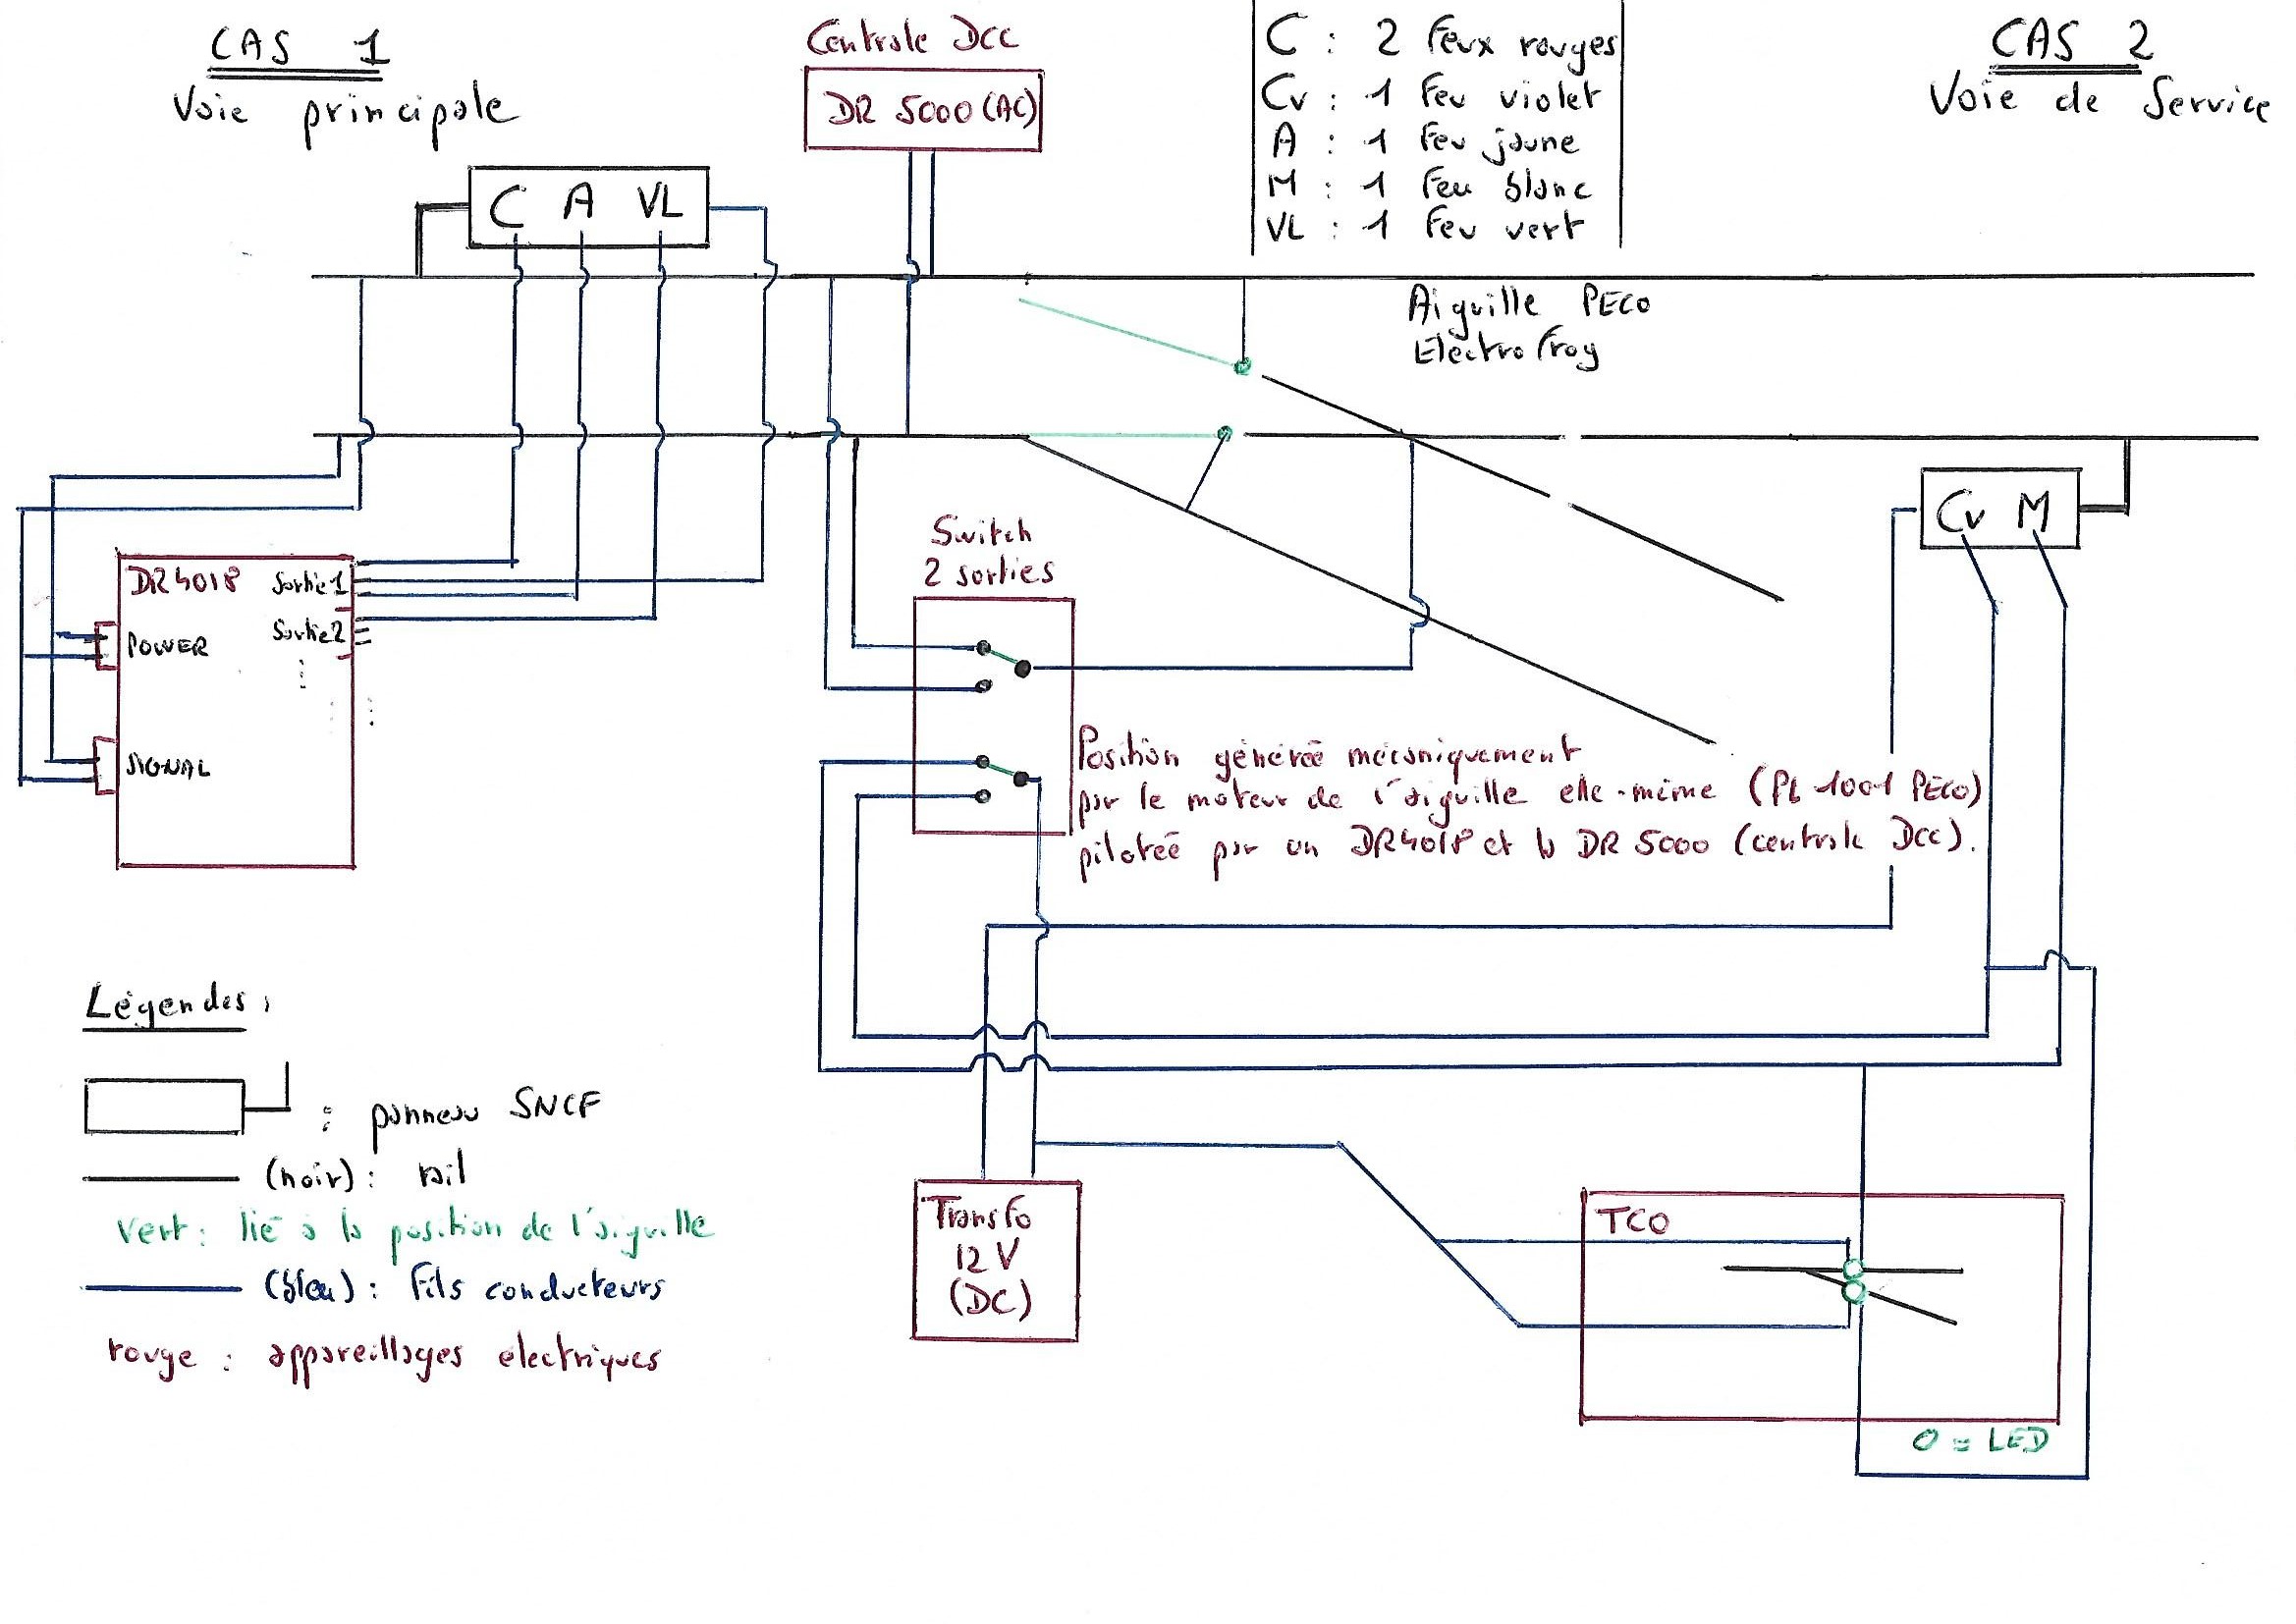 CAS 1
Voie principale
Centrale DCC
DR 5000 (AC)
C : 2 feux rouges
Cv : 1 feu violet
A : 1 feu jaune
M : 1 feu blanc
VL : 1 feu vert
CAS 2
Voie de Service
C A VL
Aiguille PECO
Electrofrog
Cv M
Switch
2 sorties
DR4018
Sortie 1
Sortie 2
POWER
SIGNAL
Position générée mécaniquement
par le moteur de l'aiguille elle-même (PL 1001 PECO)
pilotée par un DR4018 et la DR 5000 (centrale DCC).
Légendes :
: panneau SNCF
(noir) : rail
vert : lié à la position de l'aiguille
(bleu) : fils conducteurs
rouge : appareillages électriques
Transfo
12 V
(DC)
TCO
O = LED